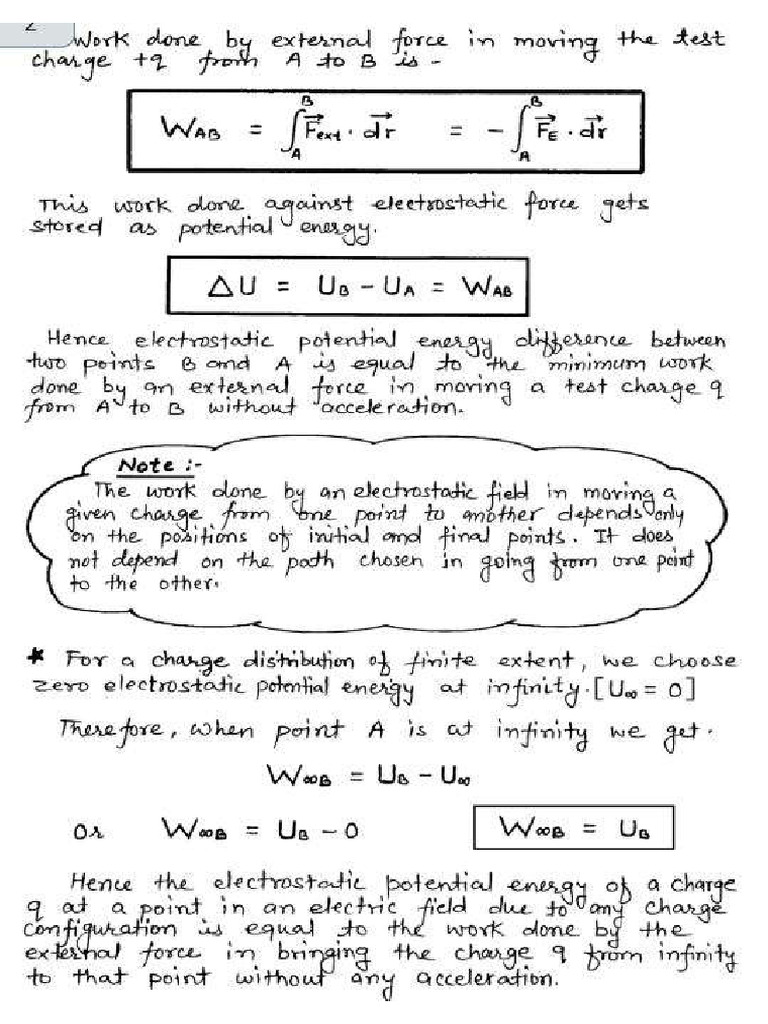 2
Work done by external force in moving the test
charge +q from A to B is -
W_AB = ∫_A^B F⃗_ext · d⃗r = - ∫_A^B F⃗_E · d⃗r
This work done against electrostatic force gets
stored as potential energy.
ΔU = U_B - U_A = W_AB
Hence electrostatic potential energy difference between
two points B and A is equal to the minimum work
done by an external force in moving a test charge q
from A to B without acceleration.
Note :-
The work done by an electrostatic field in moving a
given charge from one point to another depends only
on the positions of initial and final points. It does
not depend on the path chosen in going from one point
to the other.
* For a charge distribution of finite extent, we choose
zero electrostatic potential energy at infinity. [U_∞ = 0]
Therefore, when point A is at infinity we get.
W_∞B = U_B - U_∞
Or W_∞B = U_B - 0 W_∞B = U_B
Hence the electrostatic potential energy of a charge
q at a point in an electric field due to any charge
configuration is equal to the work done by the
external force in bringing the charge q from infinity
to that point without any acceleration.